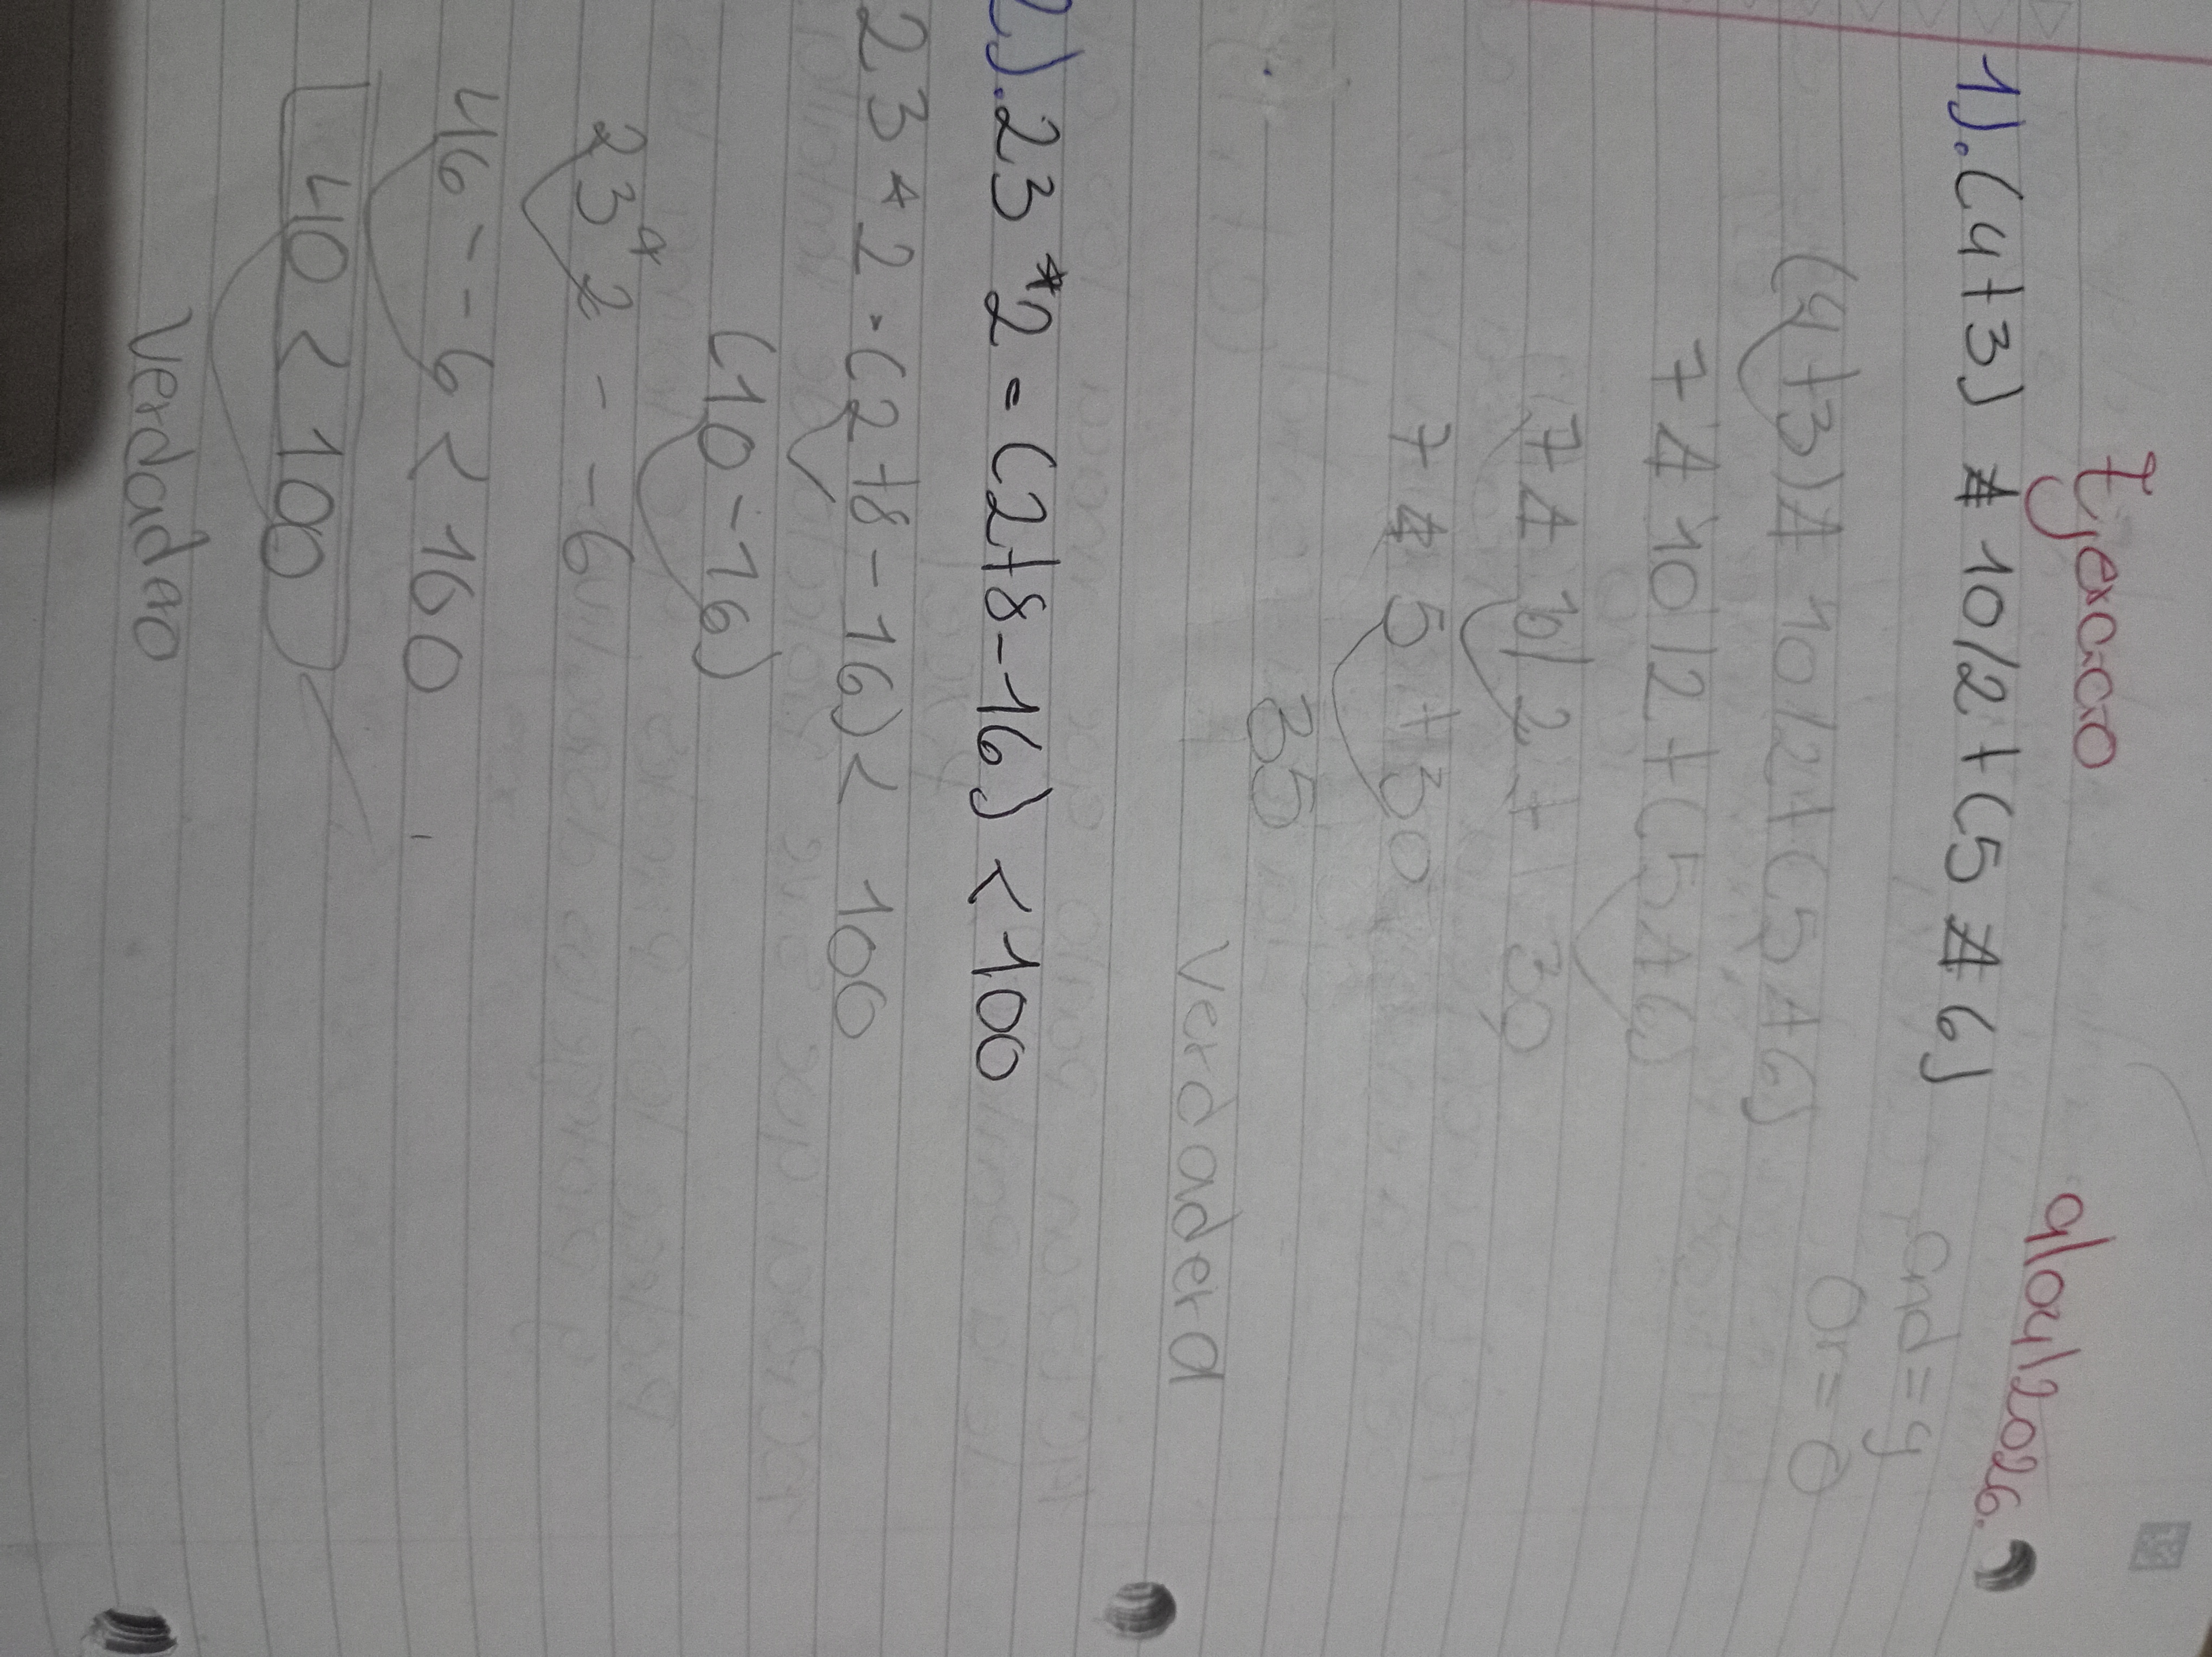 Ejercicio 9/04/2026.
and = y
Or = O
1). (4+3) * 10/2 + (5 * 6)
(4+3) * 10/2 + (5 * 6)
7 * 10/2 + (5 * 6)
7 * 10/2 + 30
7 * 5 + 30
35
Verdadera
2). 23*2 = (2+8-16) < 100
23 * 2 - (2+8-16) < 100
(10-16)
23*2 - -6
46 - -6 < 160
40 < 100
Verdadero